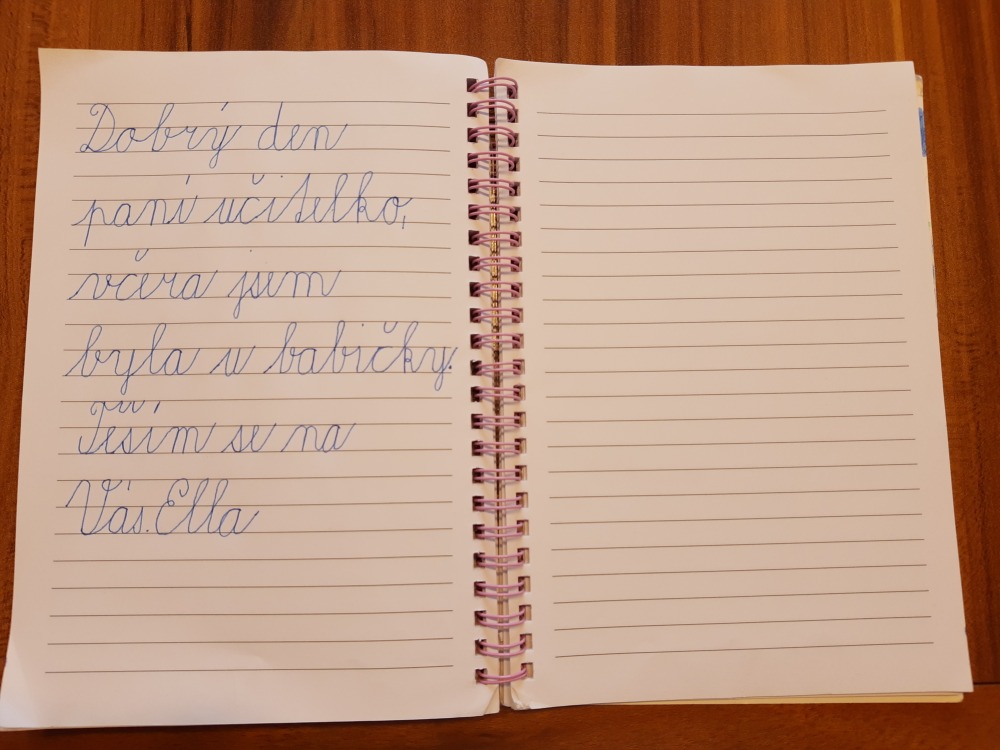 Dobrý den
paní učitelko,
včera jsem
byla u babičky.
Těším se na
Vás. Ella